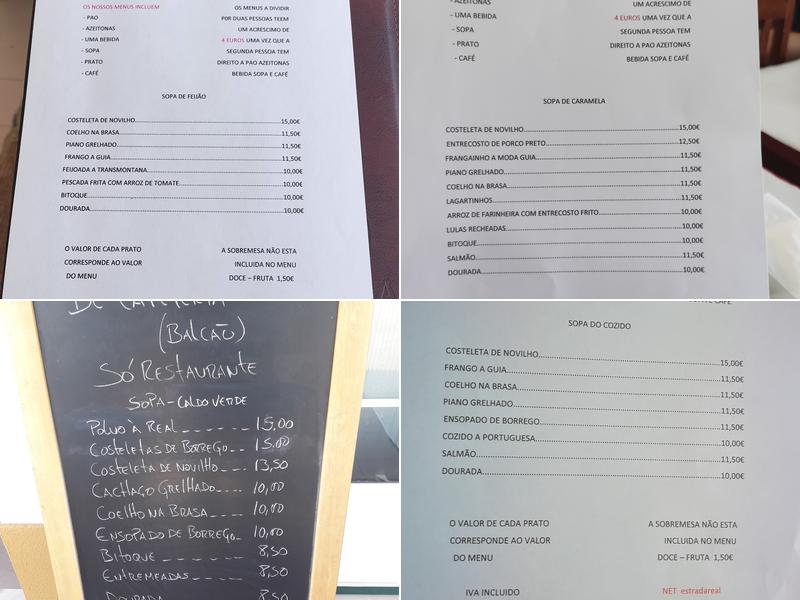 OS NOSSOS MENUS INCLUEM
- PAO
- AZEITONAS
- UMA BEBIDA
- SOPA
- PRATO
- CAFÉ
OS MENUS A DIVIDIR
POR DUAS PESSOAS TEEM
UM ACRESCIMO DE
4 EUROS UMA VEZ QUE A
SEGUNDA PESSOA TEM
DIREITO A PAO AZEITONAS
BEBIDA SOPA E CAFÉ
SOPA DE FEIJÃO
COSTELETA DE NOVILHO...15,00€
COELHO NA BRASA...11,50€
PIANO GRELHADO...11,50€
FRANGO A GUIA...11,50€
FEIJOADA A TRANSMONTANA...10,00€
PESCADA FRITA COM ARROZ DE TOMATE...10,00€
BITOQUE...10,00€
DOURADA...10,00€
O VALOR DE CADA PRATO
CORRESPONDE AO VALOR
DO MENU
A SOBREMESA NÃO ESTA
INCLUIDA NO MENU
DOCE – FRUTA 1,50€
AZEITONAS
- UMA BEBIDA
- SOPA
- PRATO
- CAFÉ
UM ACRESCIMO DE
4 EUROS UMA VEZ QUE A
SEGUNDA PESSOA TEM
DIREITO A PAO AZEITONAS
BEBIDA SOPA E CAFÉ
SOPA DE CARAMELA
COSTELETA DE NOVILHO...15,00€
ENTRECOSTO DE PORCO PRETO...12,50€
FRANGAINHO A MODA GUIA...11,50€
PIANO GRELHADO...11,50€
COELHO NA BRASA...11,50€
LAGARTINHOS...11,50€
ARROZ DE FARINHEIRA COM ENTRECOSTO FRITO...10,00€
LULAS RECHEADAS...10,00€
BITOQUE...10,00€
SALMÃO...11,50€
DOURADA...10,00€
DE CAFETERIA
(BALCÃO)
SÓ RESTAURANTE
SOPA - CALDO VERDE
POLVO À REAL ------ 15,00
COSTELETAS DE BORREGO-- 15.00
COSTELETA DE NOVILHO --- 13,50
CACHAÇO GRELHADO---- 10,00
COELHO NA BRASA---- 10,00
ENSOPADO DE BORREGO- 10,00
BITOQUE ------- 8,50
ENTREMEADAS ----- 8,50
DOURADA 8,50
SOPA DO COZIDO
COSTELETA DE NOVILHO...15,00€
FRANGO A GUIA...11,50€
COELHO NA BRASA...11,50€
PIANO GRELHADO...11,50€
ENSOPADO DE BORREGO...11,50€
COZIDO A PORTUGUESA...10,00€
SALMÃO...11,50€
DOURADA...10,00€
O VALOR DE CADA PRATO
CORRESPONDE AO VALOR
DO MENU
A SOBREMESA NÃO ESTA
INCLUIDA NO MENU
DOCE – FRUTA 1,50€
IVA INCLUIDO
NET estradareal